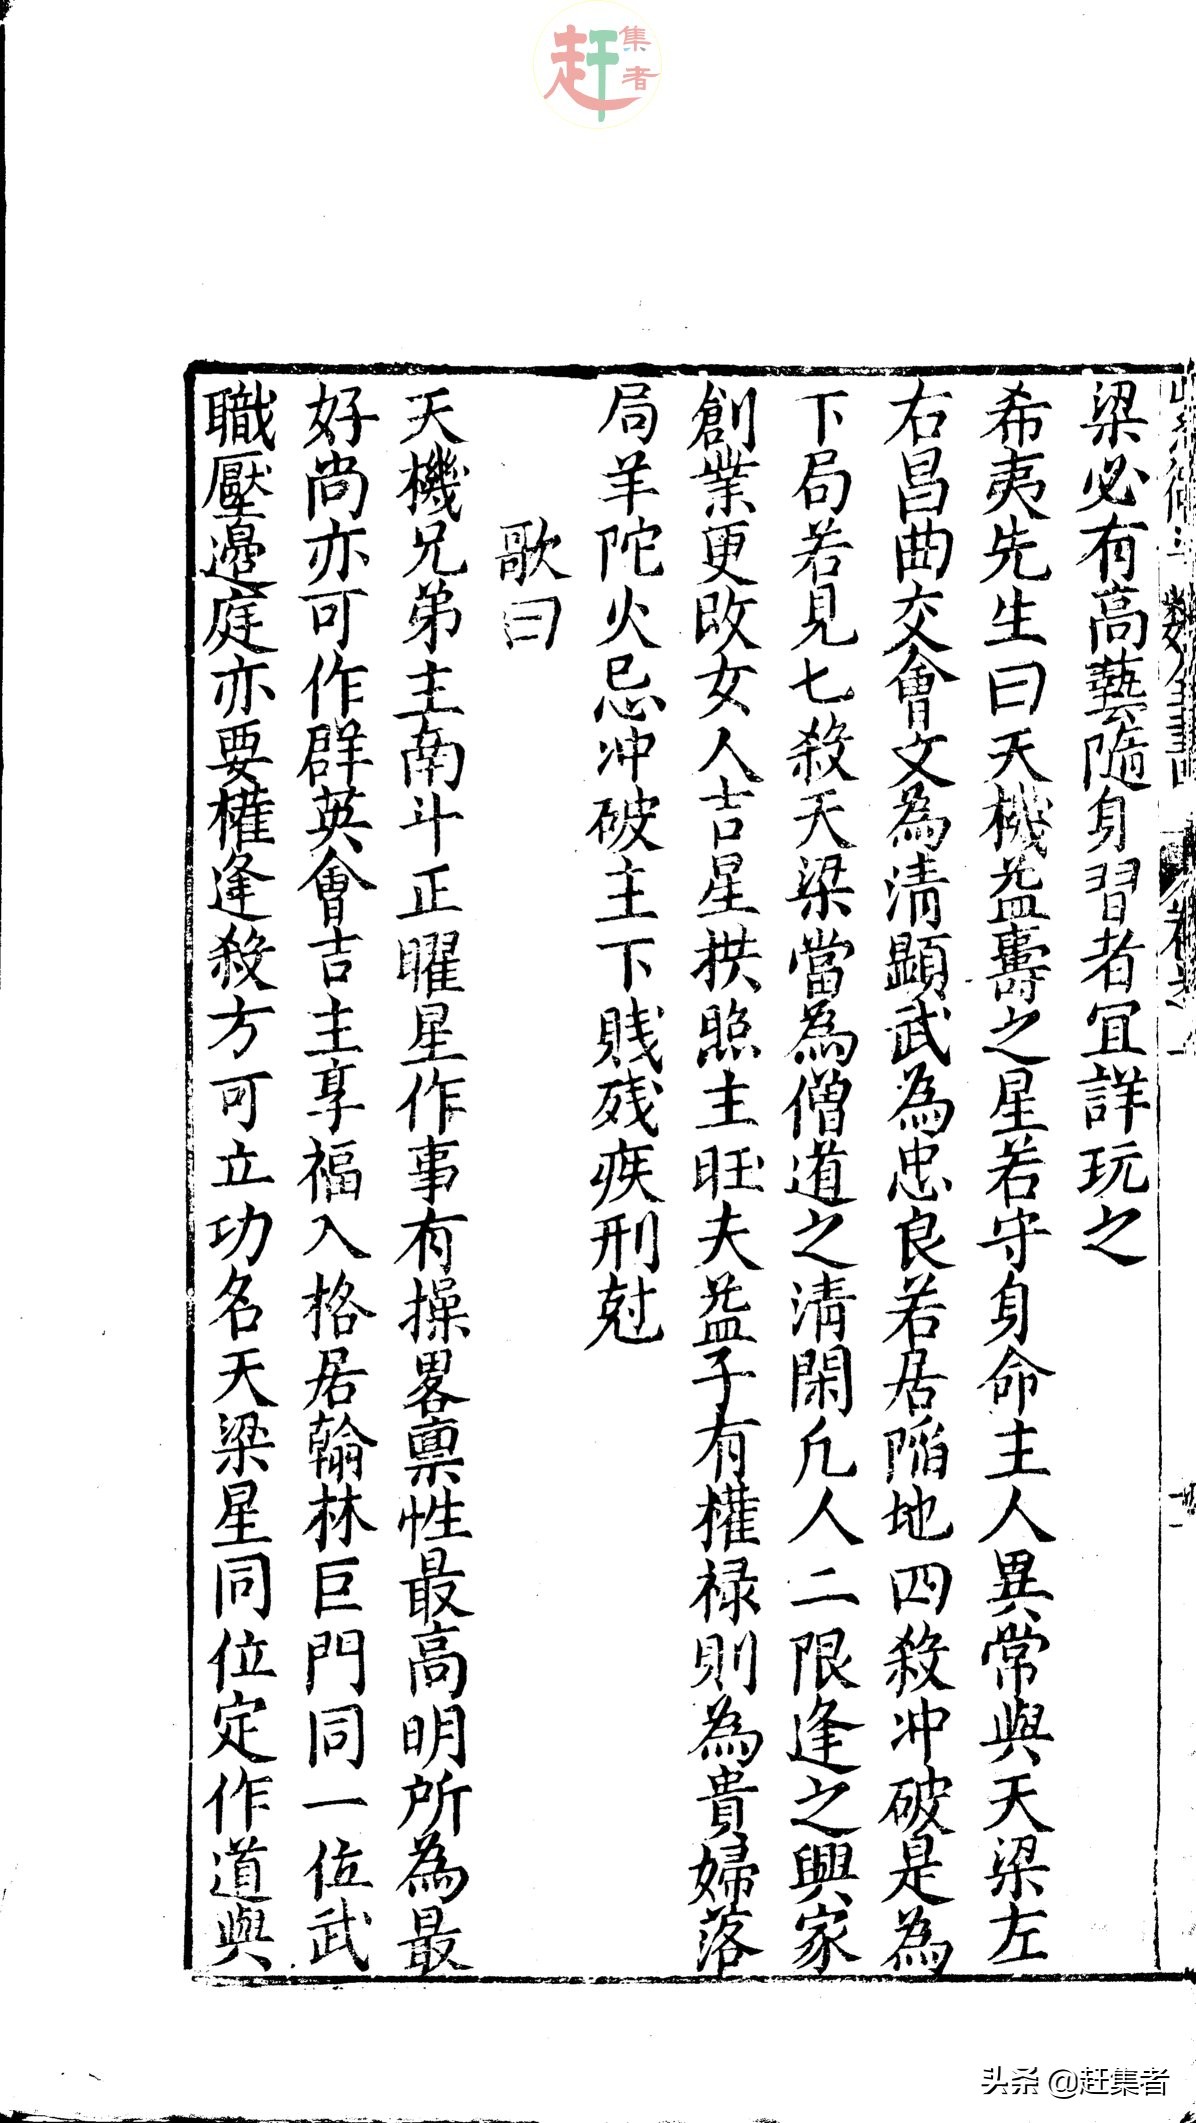 赶集者
梁必有高藝隨身習者宜詳玩之
希夷先生曰天機益壽之星若守身命主人異常與天梁左
右昌曲交會文為清顯武為忠良若居陷地四殺冲破是為
下局若見七殺天梁當為僧道之清閑凢人二限逢之興家
創業更改女人吉星拱照主旺夫益子有權禄則為貴婦落
局羊陀火忌冲破主下賎残疾刑尅
歌曰
天機兄弟主南斗正曜星作事有操畧禀性最高明所為最
好尚亦可作群英會吉主享福入格居翰林巨門同一位武
職壓邉庭亦要權逢殺方可立功名天梁星同位定作道與
头条 @赶集者